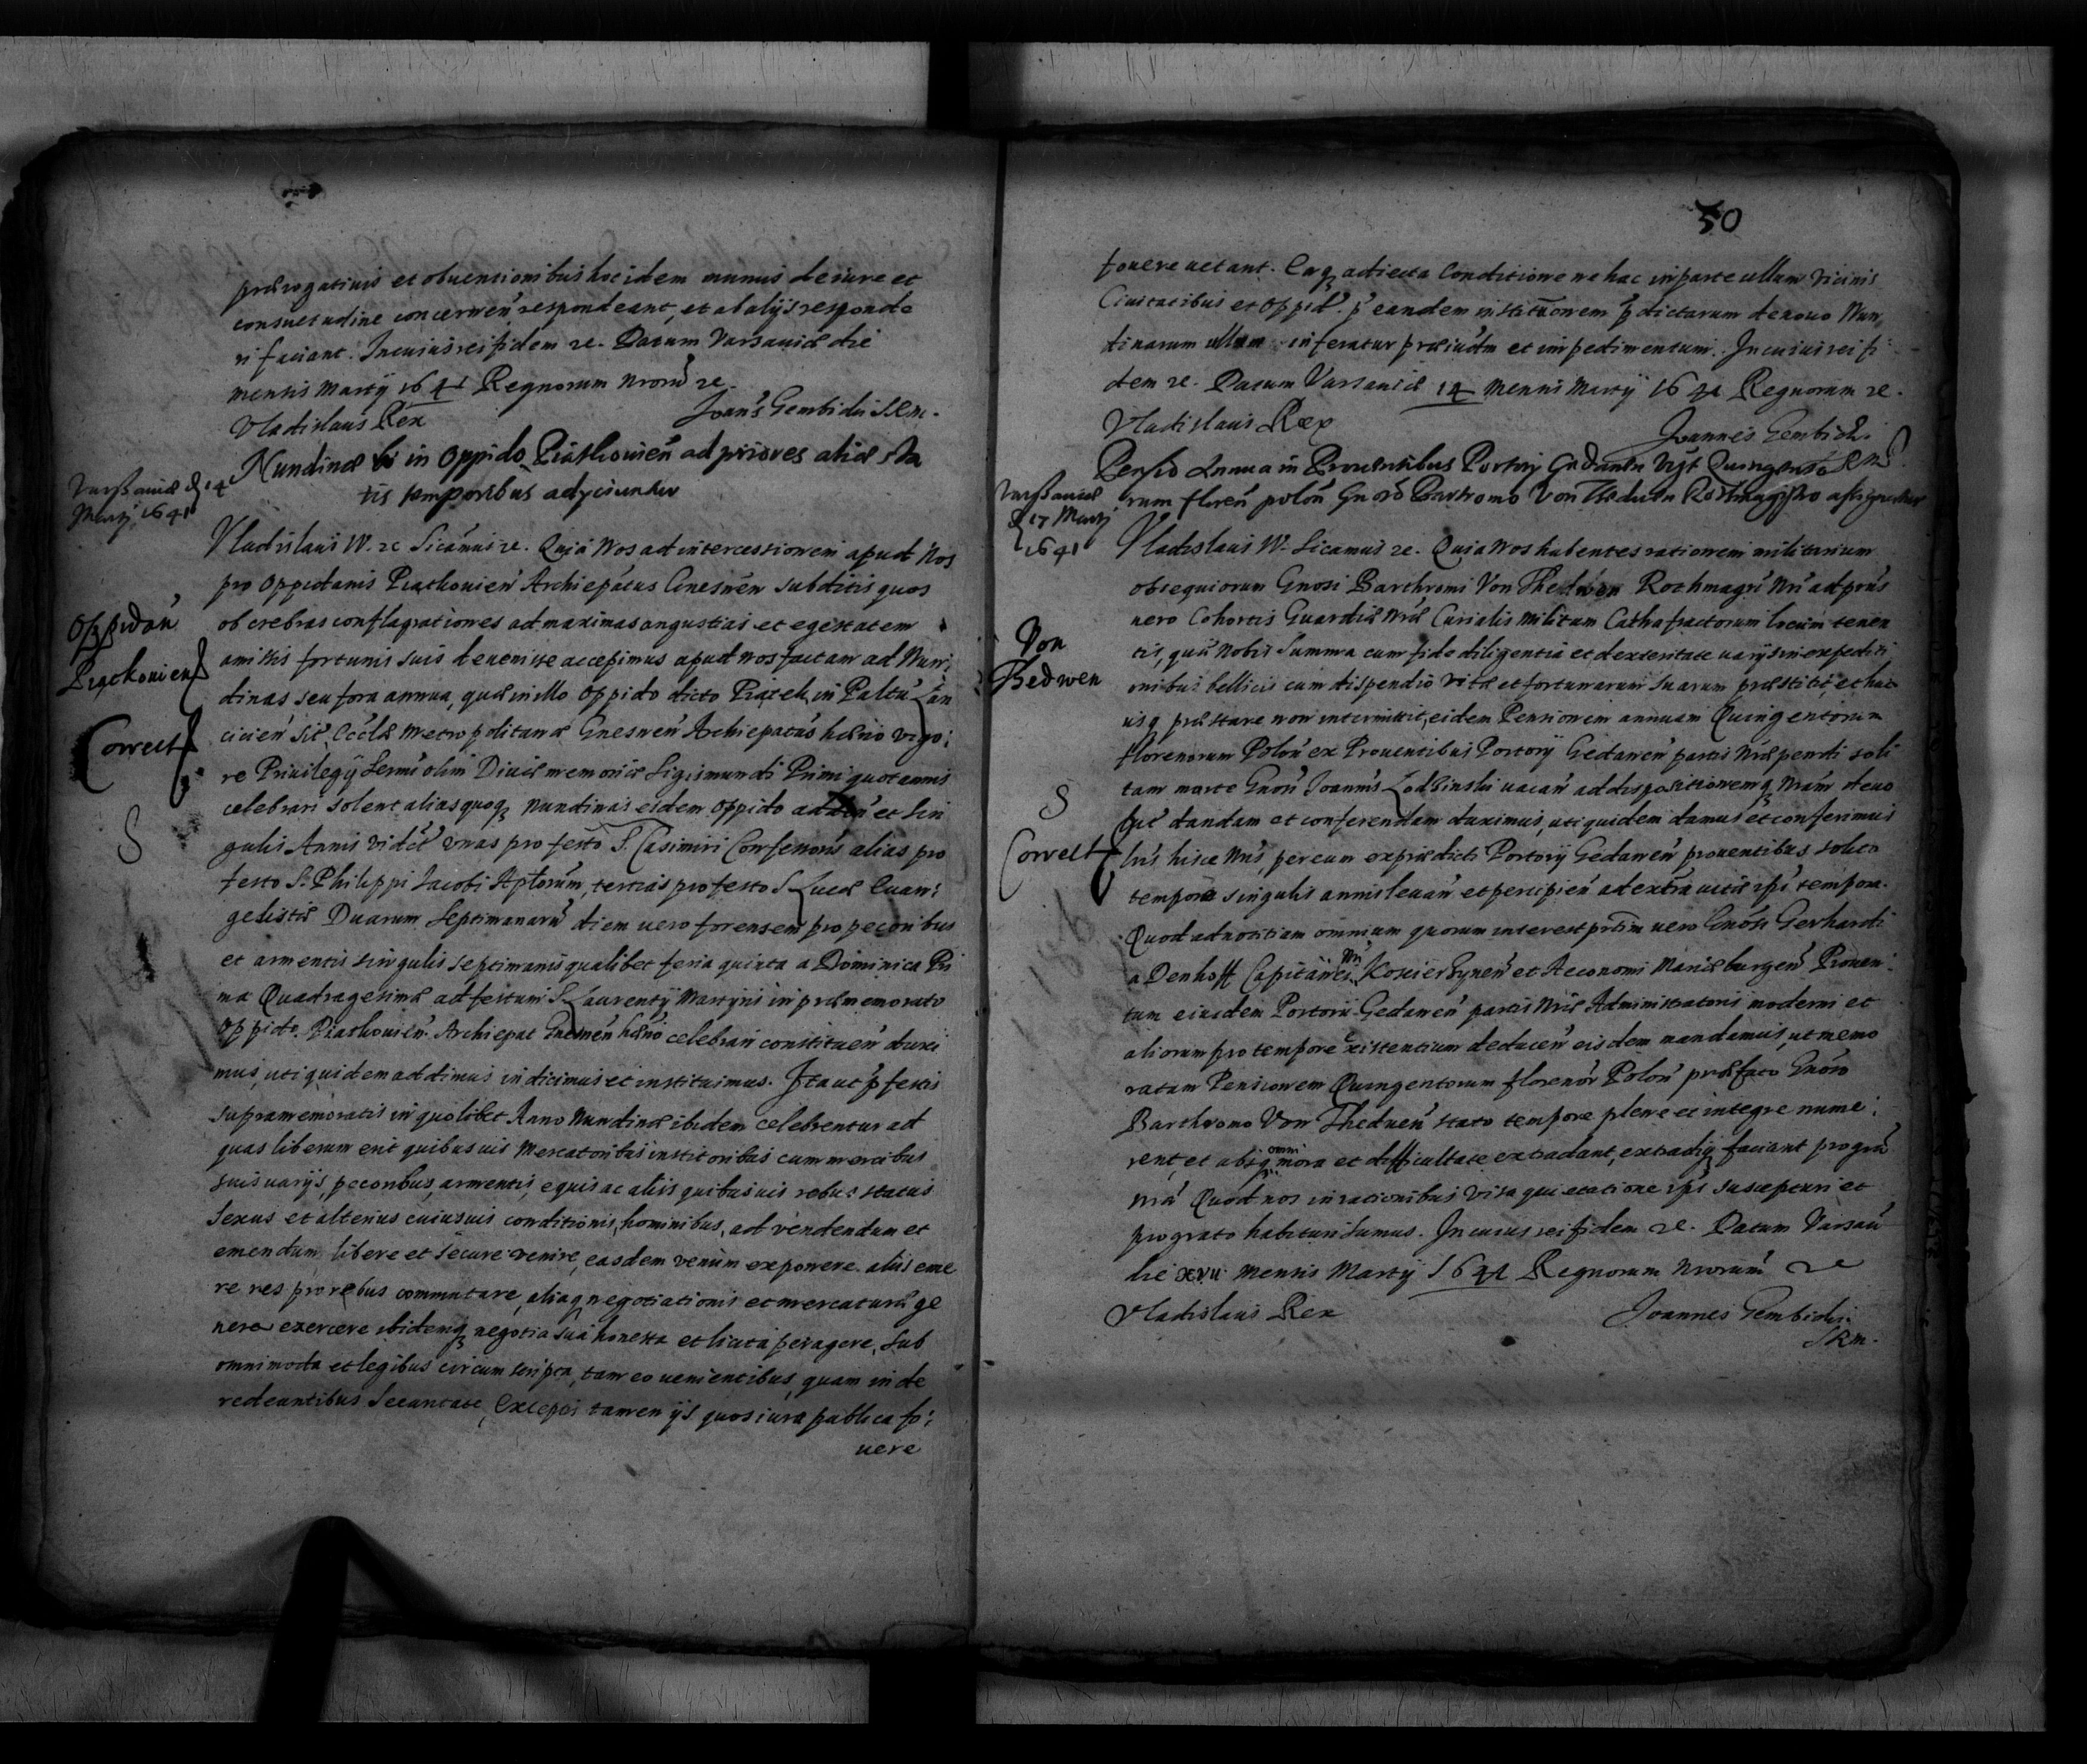 prærogatiuis et obuentionibus hoc idem munus de iure et
consuetudine concernen̄ respondeant, et ab alijs responde
ri faciant. In cuius rei fidem ꝛc. Datum Varsauiæ die
mensis Martij 1641 Regnorum nrorū ꝛc.
Vladislaus Rex
Joan̄s Gembicki SRM.
Nundinæ in Oppido Piathkouien̄ ad priores aliæ sta
tis temporibus adyciuntur
Varssauiæ d 14
Martij 1641
Vladislaus IV. ꝛc Sicamus ꝛc. Quia Nos ad intercessionem apud Nos
pro Oppidanis Piatkouien̄ Archiep̄atus Gnesnēn subditis quos
ob crebras conflagrationes ad maximas angustias et egestatem
amissis fortunis suis deuenisse accepimus apud nos factam ad Nun:
dinas seu fora annua, quæ in illo Oppido dicto Piątek in Paltū Lan
cicien̄ sit. Eccłæ Metropolitanæ Gnesnen̄ Archiepatūs hæn̄o vigo:
re Priuilegij Sermi olim Diuæ memoriæ Sigismundi Primi quotannis
celebrari solent alias quoq nundinas eidem Oppido adden̄ et sin
gulis Annis vidēt vnas pro festo S. Casimiri Confessoris alias pro
festo S. Philippi Jacobi Aptorūm, tertias pro festo S Lucæ Euan:
gelistæ Duarum Septimanarū diem uero forensem pro pecoribus
et armentis singulis septimanis qualibet feria quinta a Dominica Pri
ma Quadragesimæ ad festum S Laurentij Martyris in præmemorato
Oppido Piatkouien̄. Archiepat Gnesnen̄ hæn̄o celebrari constituen̄ duxi
mus, uti quidem addimus indicimus et instituimus. Ita ut p festis
supramemoratis in quolibet Anno Nundinæ ibidem celebrentur ad
quas liberum erit quibusuis Mercatoribus institoribus cum mercibus
suis uarijs, pecoribus, armentis, equis ac aliis quibusuis rebus status
Sexus et alterius cuiusuis conditionis, hominibus, ad vendendum et
emendum libere et secure venire, easdem venum exponere. alias eme
re res pro rebus commutare, aliaq negotiationis et mercaturæ ge
nere exercere ibidemq negotia sua honesta et licita peragere, sub
omnimoda et legibus circumscripta, tam eo uenientibus, quam inde
redeuntibus Securitate, Exceptis tamen ijs quos iura publica fo:
uere
Oppidan̄
Piątkouien
Correct
S
50
fouere uetant. Eaq adiecta Conditione ne hac in parte ullum vicinis
Ciuitatibus et Oppid. p eandem institūonem p dictarum denouo Nun
dinarum ullum inferatur præiudm et impedimentum. In cuius rei fi
dem ꝛc. Datum Varsauiæ 14 mensis Martij 1641 Regnorum ꝛc.
Vladislaus Rex
Joannes Gembicki
SRM.
Pensio Annua in Prouentibus Portorij Gedanen Vigt Quingento
rum floren̄ polon̄ Gn̄oso Barthromo Von Theduen Rothmagistro assignatur
Varssauiæ
d 17 Martij
1641
Vladislaus IV. Sicamus ꝛc. Quia Nos habentes rationem militarium
obsequiorum Gnosi Barthromi Von Theduen Rothmagrī Nrī ad præs
nero Cohortis Guardiæ Nræ Curialis militum Cathafractorum locum tenen
tis, quæ Nobis Summa cum fide diligentia et dexteritate uarijs in expediti
onibus bellicis cum dispendio vitæ et fortunarum suarum præstitit, et huc
usq præstare non intermittit, eidem Pensionem annuam Quingentorum
florenorum Polon̄ ex Prouentibus Portorij Gedanen̄ partis Nræ pendi soli
tam morte Gnosi Joannis Lodzinski uacan̄ ad dispositionemq Nram deuo
lut̄ dandam et conferendam duximus, uti quidem damus et conferimus
Lris hisce Nris, per eum ex prædicti Portorij Gedanen̄ prouentibus solito
tempore singulis annis leuan̄ et percipien̄ ad extrā uitæ ipī tempora.
Quod ad notitiam omnium quorum interest prtīm uero Gnosi Gerhardi
a Denhoff Capitanei Nri Koscierzynen̄ et Aeconomi Mariæburgen̄ Prouen:
tum eiusdem Portorij Gedanen̄ partis Nræ Administratoris moderni et
aliorum pro tempore existentium deducen̄ eisdem mandamus, ut memo
ratam Pensionem Quingentorum florenor̄ Polon̄ præfato Gnōso
Barthromo Von Theduen̄ stato tempore plene et integre nume:
rent, et absq omni mora et difficultate extradant, extradiq faciant pro grā
nrā Quod nos in rationibus visa qui etatione ipī suscepturi et
pro grato habituri sumus. In cuius rei fidem ꝛc. Datum Varsau
die xvii mensis Martij 1641 Regnorum Nrorum̄ ꝛc
Vladislaus Rex
Joannes Gembicki
SRM.
Von
Thedwen
S
Correct